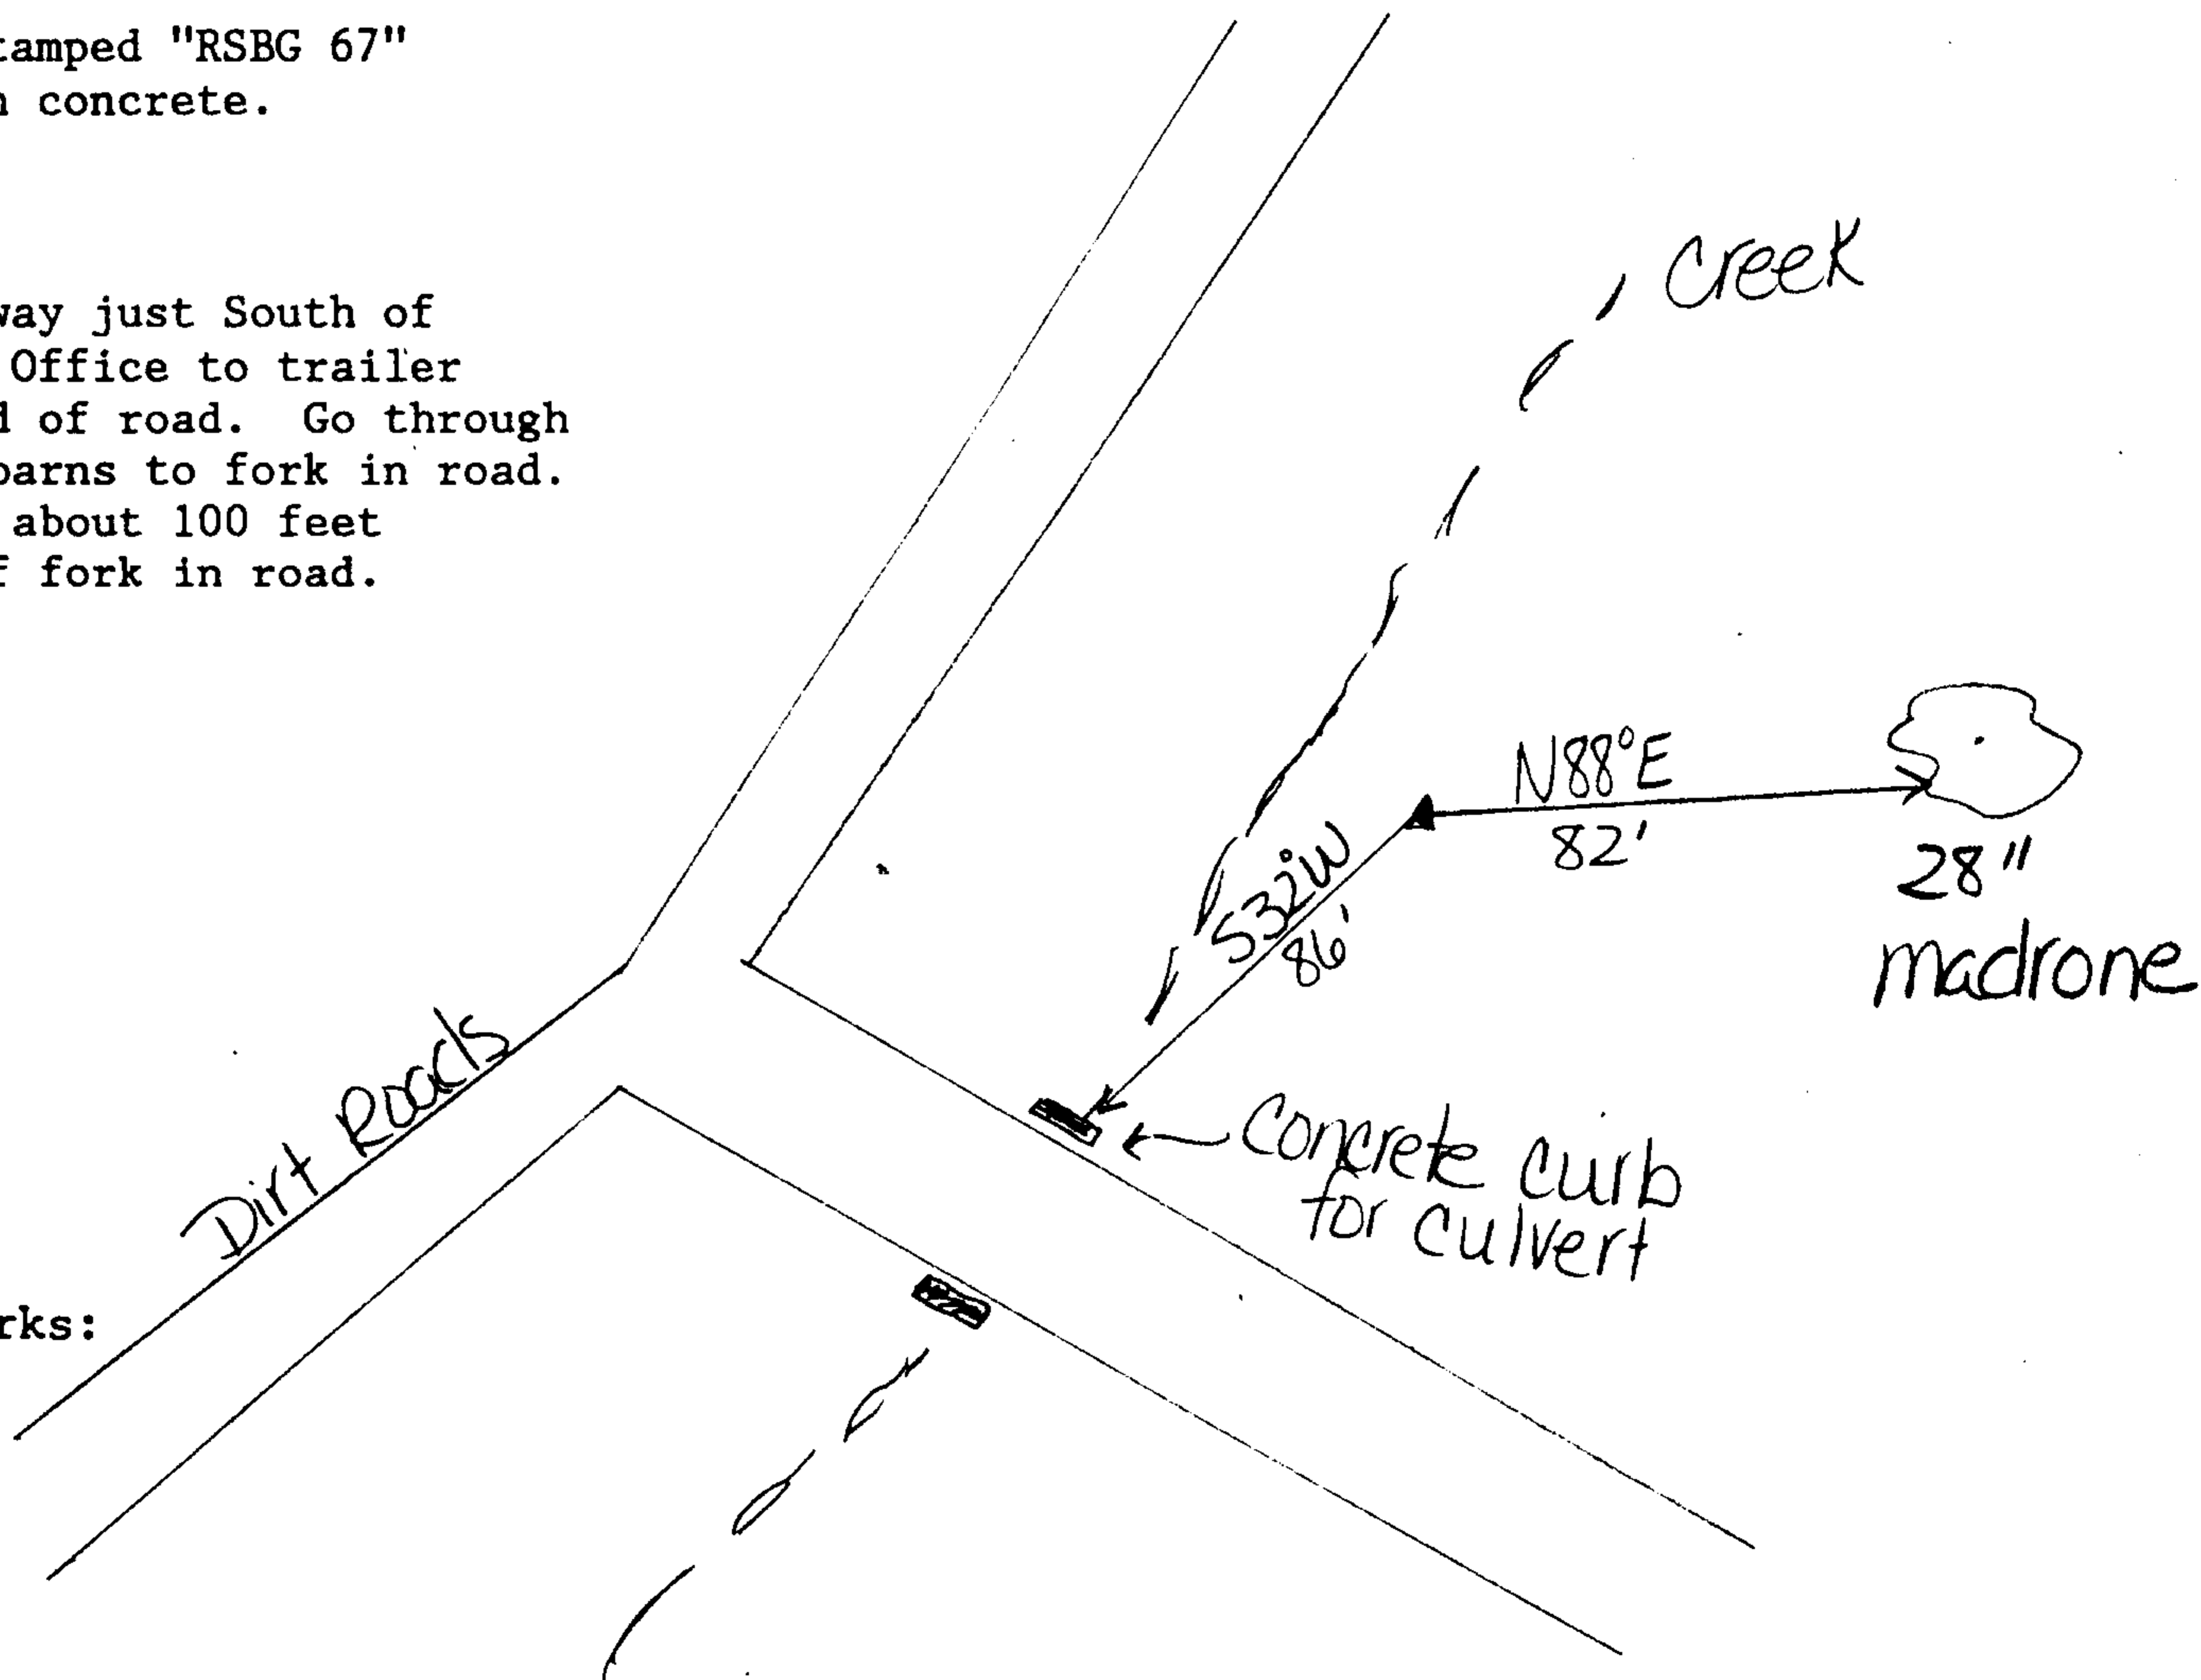 tamped "RSBG 67"
n concrete.
way just South of
Office to trailer
d of road.  Go through
barns to fork in road.
about 100 feet
f fork in road.
creek
N88°E
82'
28"
madrone
S32°W
86'
Dirt Roads
Concrete curb
for culvert
rks: